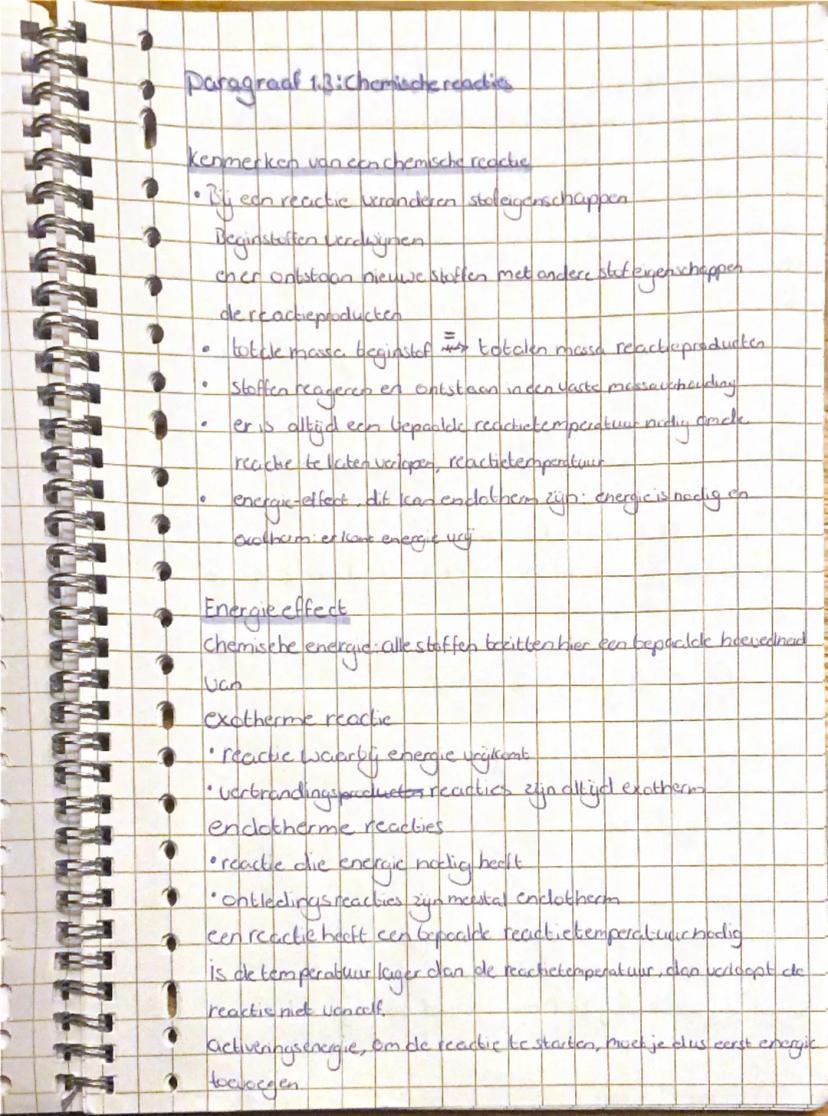 Paragraaf 1.3: Chemische reacties
Kenmerken van een chemische reactie
• Bij een reactie veranderen stofeigenschappen
Beginstoffen verdwijnen
en er ontstaan nieuwe stoffen met andere stofeigenschappen
de reactieproducten
• totale massa beginstof = totalen massa reactieproducten
• stoffen reageren en ontstaan in den vaste massaverhouding
• er is altijd een bepaalde reactietemperatuur nodig om de
reactie te laten verlopen, reactietemperatuur
• energie-effect, dit kan endotherm zijn: energie is nodig en
exotherm: er komt energie vrij
Energie effect
Chemische energie: alle stoffen bezitten hier een bepaalde hoeveelheid
van
exotherme reactie
• reactie waarbij energie vrijkomt
• verbrandingsreacties zijn altijd exotherm
endotherme reacties
• reactie die energie nodig heeft
• ontledingsreacties zijn meestal endotherm
een reactie heeft een bepaalde reactietemperatuur nodig
is de temperatuur lager dan de reactietemperatuur, dan verloopt de
reactie niet vanzelf.
activeringsenergie, om de reactie te starten, moet je dus eerst energie
toevoegen